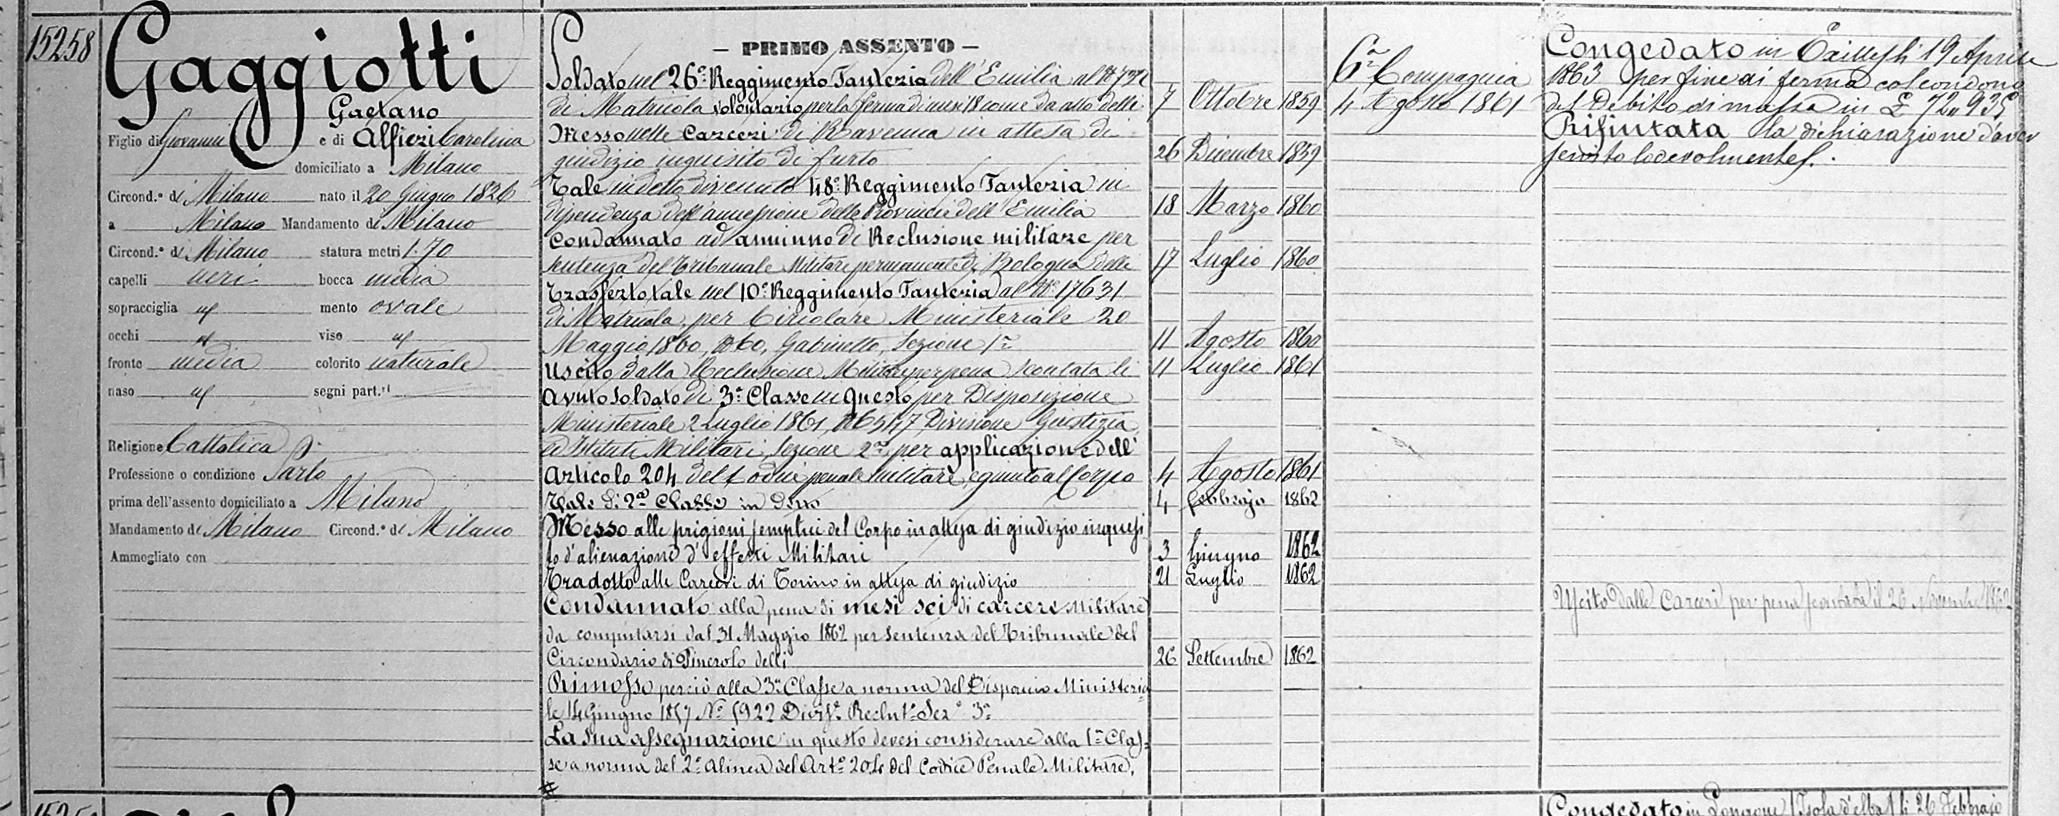 15258
Gaggiotti
Gaetano
Figlio di Giovanni e di Alfieri Carolina
domiciliato a Milano
Circond.º di Milano nato il 20 Giugno 1826
a Milano Mandamento di Milano
Circond.º di Milano statura metri 1.70
capelli neri bocca media
sopracciglia id mento ovale
occhi id viso id
fronte media colorito naturale
naso id segni part.ri
Religione Cattolica
Professione o condizione Sarto
prima dell'assento domiciliato a Milano
Mandamento di Milano Circond.º di Milano
Ammogliato con
— PRIMO ASSENTO —
Soldato nel 26º Reggimento Fanteria dell'Emilia al Nº
di Matricola volontario per la ferma di mesi 18 come da atto delli 7 Ottobre 1859
Messo nelle Carceri di Ravenna in attesa di
giudizio inquisito di furto 26 Dicembre 1859
Tale in detto divenuto 48º Reggimento Fanteria in
dipendenza dell'annessione delle Provincie dell'Emilia 18 Marzo 1860
Condannato ad anni uno di Reclusione militare per
sentenza del Tribunale Militare permanente di Bologna delli 17 Luglio 1860
Trasferto tale nel 10º Reggimento Fanteria al Nº 17631
di Matricola per Circolare Ministeriale 20
Maggio 1860, Nº 60, Gabinetto, Sezione 1ª 11 Agosto 1860
Uscito dalla Reclusione Militare per pena scontata li 11 Luglio 1861
Avuto Soldato di 3ª Classe in questo per Disposizione
Ministeriale 2 Luglio 1861, Nº 6547 Divisione Giustizia
ed Istituti Militari, Sezione 2ª per applicazione dell'
Articolo 204 del Codice penale militare, e giunto al Corpo 4 Agosto 1861
Tale di 2ª Classe in Esso 4 Febbrajo 1862
Messo alle prigioni semplici del Corpo in attesa di giudizio inquisi
to d'alienazione d'effetti Militari 3 Giugno 1862
Tradotto alle Carceri di Torino in attesa di giudizio 21 Luglio 1862
Condannato alla pena di mesi sei di carcere Militare
da computarsi dal 31 Maggio 1862 per sentenza del Tribunale del
Circondario di Pinerolo delli 26 Settembre 1862
Rimosso perciò alla 3ª Classe a norma del Dispaccio Ministeria
le 14 Giugno 1857 Nº 5922 Divisº Reclutº Sezº 3ª
La sua assegnazione in questo devesi considerare alla 1ª Clas=
se a norma del 2º Alinea del Artº 204 del Codice Penale Militare.
6ª Compagnia
4 Agosto 1861
Congedato in li 19 Aprile
1863 per fine di ferma col condono
del Debito di massa in £ 72,93
Rifiutata la dichiarazione d'aver
servito lodevolmente.
Uscito dalle Carceri per pena scontata il 26 Novembre 1862
Congedato in Longone (Isola d'elba) li 26 Febbrajo